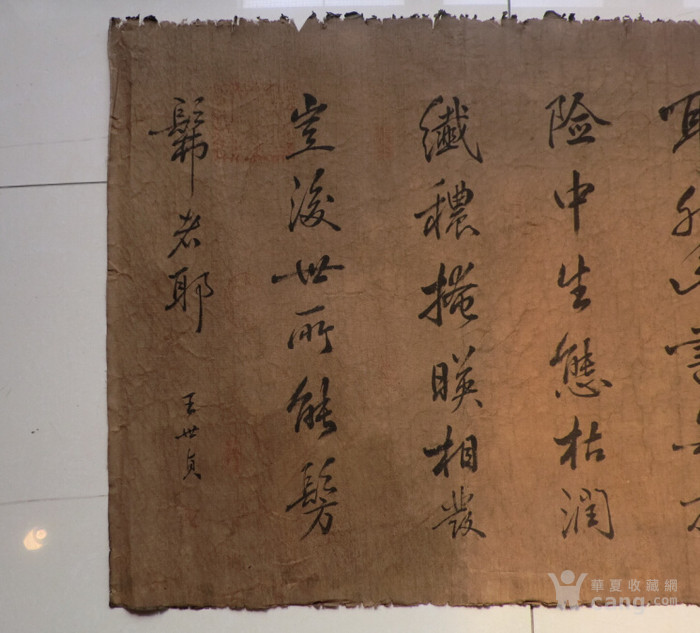 险中生態枯润
纖穠掩暎相發
豈後世所能髣
髴者耶
王世貞
華夏收藏網
cang.com